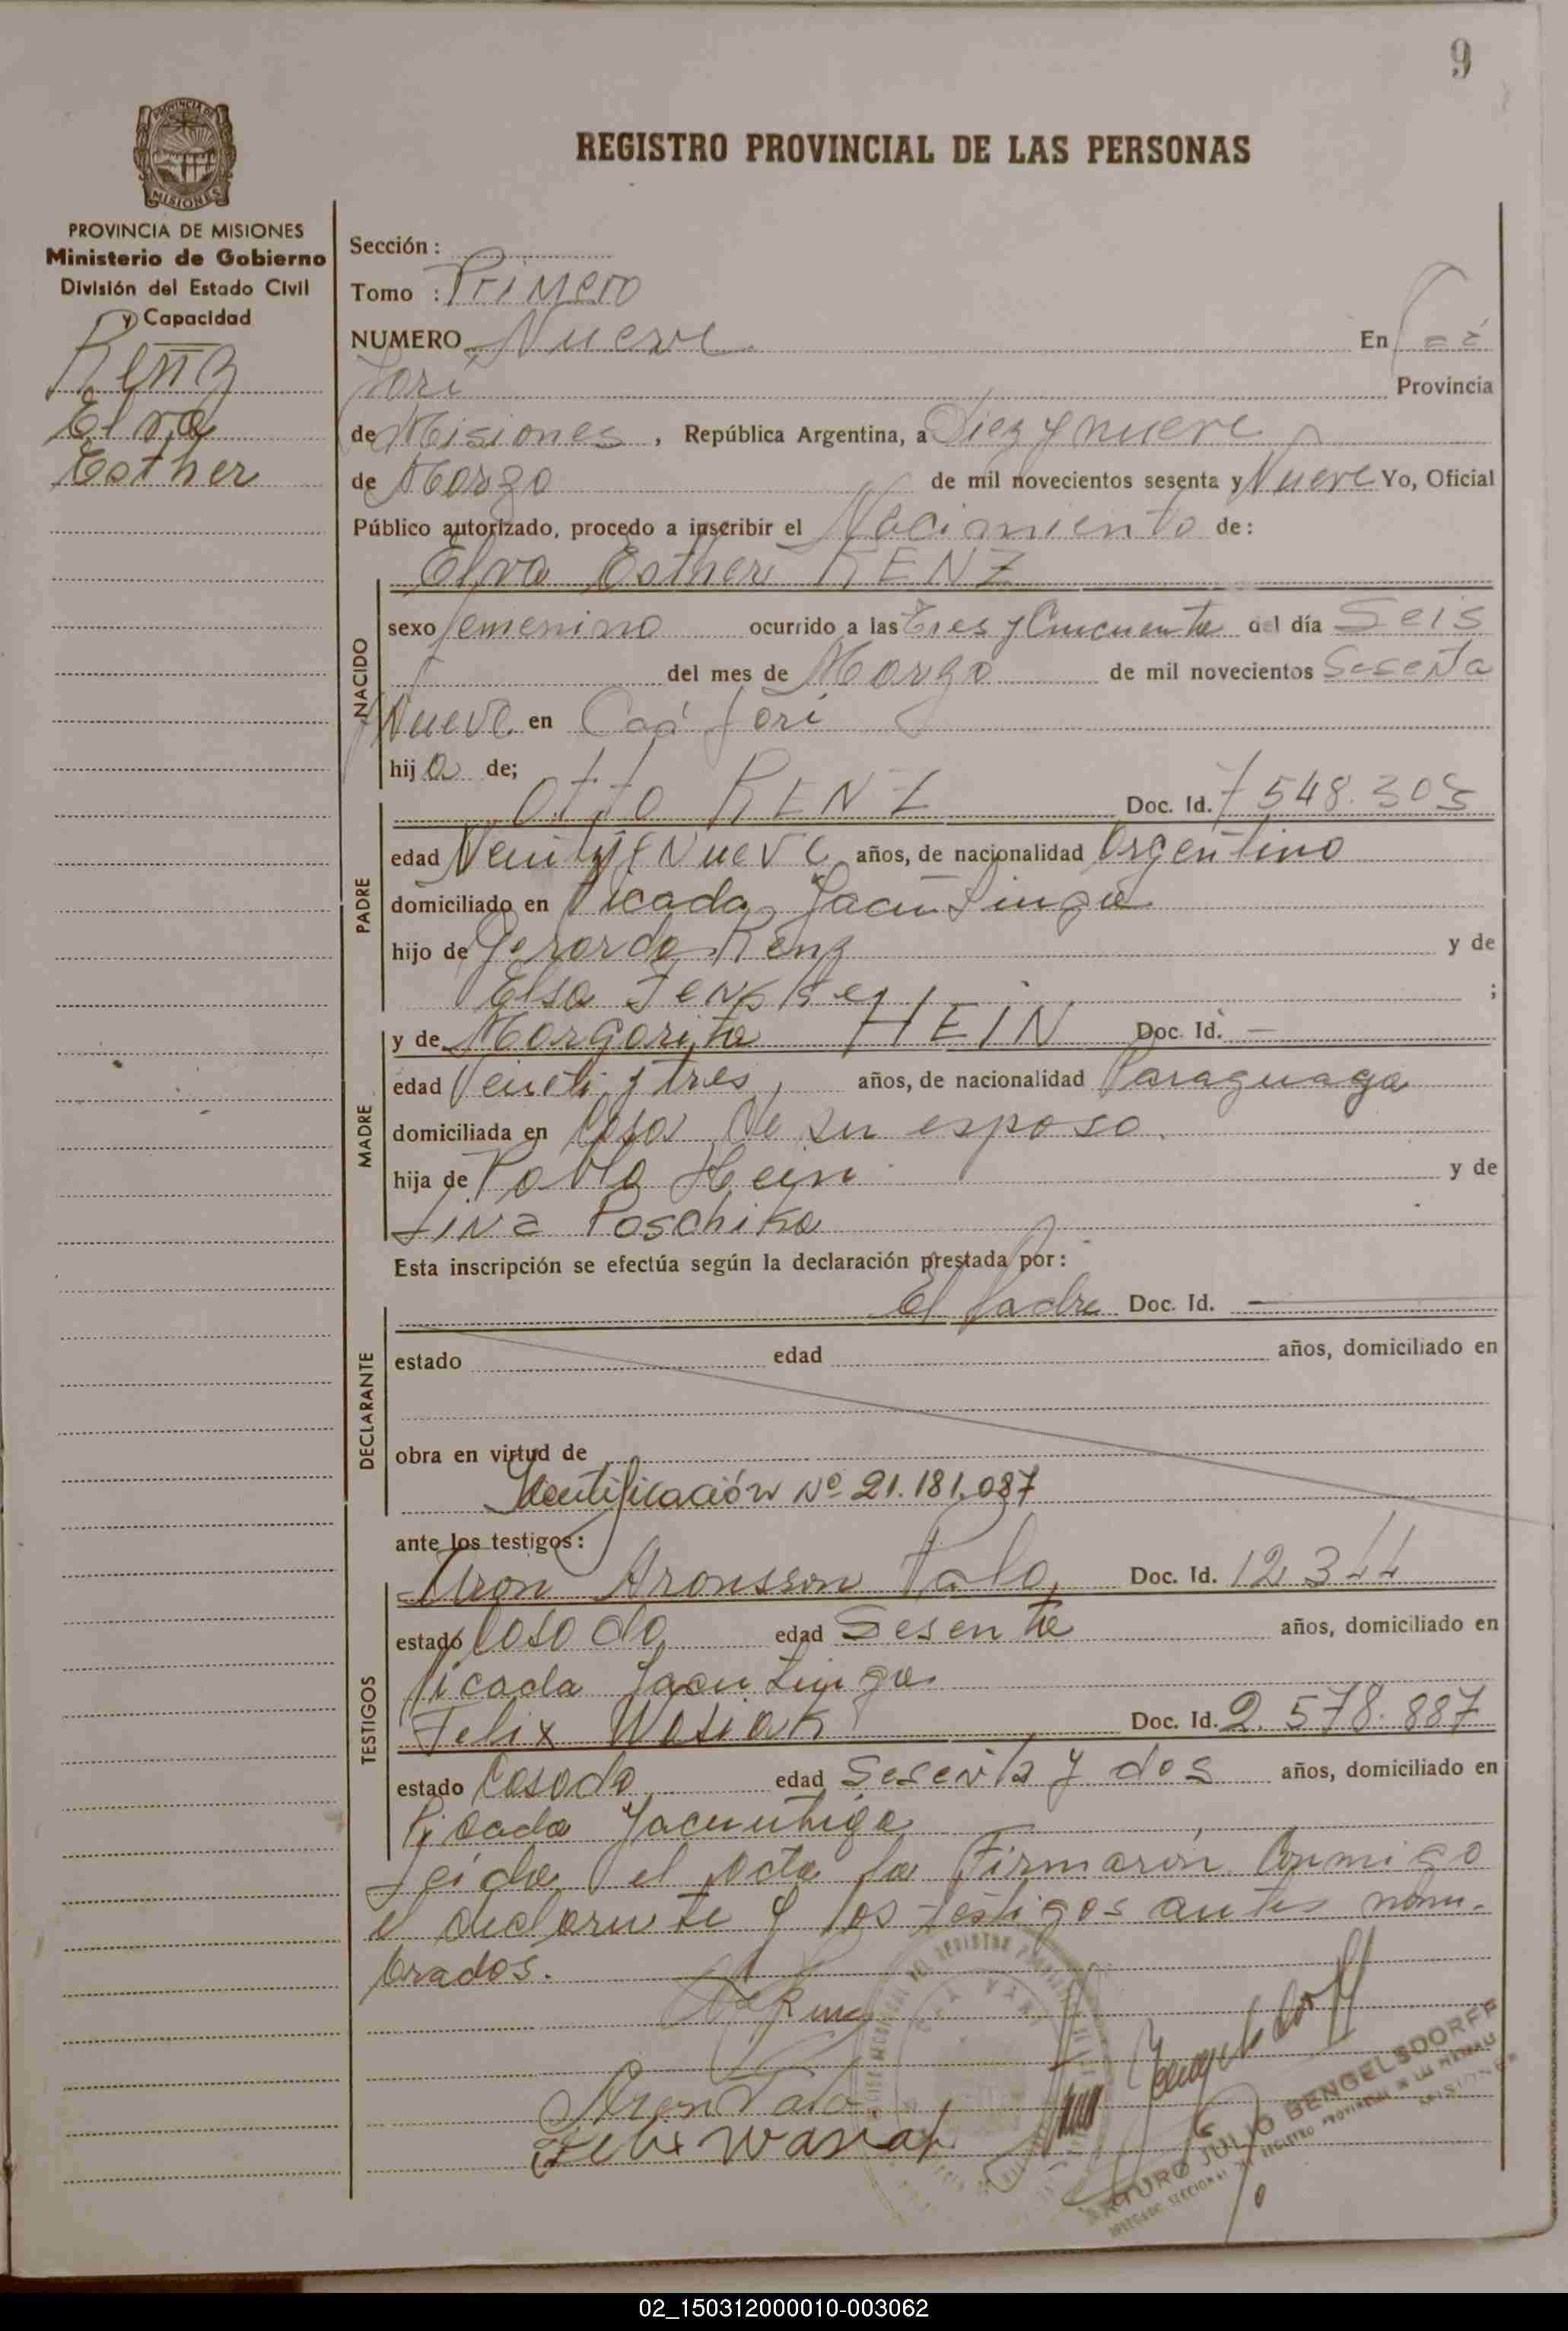 9
PROVINCIA DE
MISIONES
REGISTRO PROVINCIAL DE LAS PERSONAS
PROVINCIA DE MISIONES
Ministerio de Gobierno
División del Estado Civil
y Capacidad
Renz
Elva
Esther
Sección :
Tomo : Primero
NUMERO Nueve En Caá
Yarí Provincia
de Misiones , República Argentina, a Diez y nueve
de Marzo de mil novecientos sesenta y Nueve Yo, Oficial
Público autorizado, procedo a inscribir el Nacimiento de :
Elva Esther RENZ
NACIDO
sexo femenino ocurrido a las Tres y Cincuenta del día Seis
del mes de Marzo de mil novecientos Sesenta
y Nueve en Caá Yarí
hija de;
Otto RENZ Doc. Id. 7548.305
PADRE
edad Veintye Nueve años, de nacionalidad Argentino
domiciliado en Picada Yacutinga
hijo de Gerardo Renz y de
Elsa ;
y de Margarita HEIN Doc. Id. —
MADRE
edad Veinti y tres, años, de nacionalidad Paraguaya
domiciliada en Casa de su esposo.
hija de Pablo Hein y de
Lina Poschika
Esta inscripción se efectúa según la declaración prestada por :
El Padre Doc. Id. —
DECLARANTE
estado edad años, domiciliado en
obra en virtud de
Identificación Nº 21.181.087
ante los testigos :
Aron Aronsson Palo Doc. Id. 12344
TESTIGOS
estado Casado edad Sesenta años, domiciliado en
Picada Yacutinga
Felix Wasiak Doc. Id. 2.578.887
estado Casado edad Sesenta y dos años, domiciliado en
Picada
Leida el acta la Firmaron Conmigo
el declarante y los testigos antes nom-
brados.
Aron Palo
Felix Wasiak
Bengelsdorff
ARTURO JULIO BENGELSDORFF
MISIONES
02_150312000010-003062